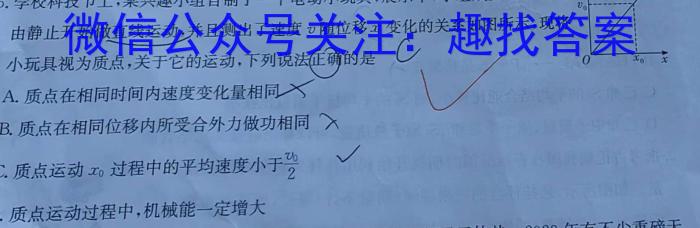 学校科技节上,某兴趣小组自制了一个电动小玩具
由静止开始做直线运动,并且测出了速度v随位移x变化的关系如图所示,现将
微信公众号关注:趣找答案
小玩具视为质点,关于它的运动,下列说法正确的是
C
v₀
O x₀ x
A. 质点在相同时间内速度变化量相同
B. 质点在相同位移内所受合外力做功相同
C. 质点运动 x₀ 过程中的平均速度小于v₀/2
. 质点运动过程中,机械能一定增大